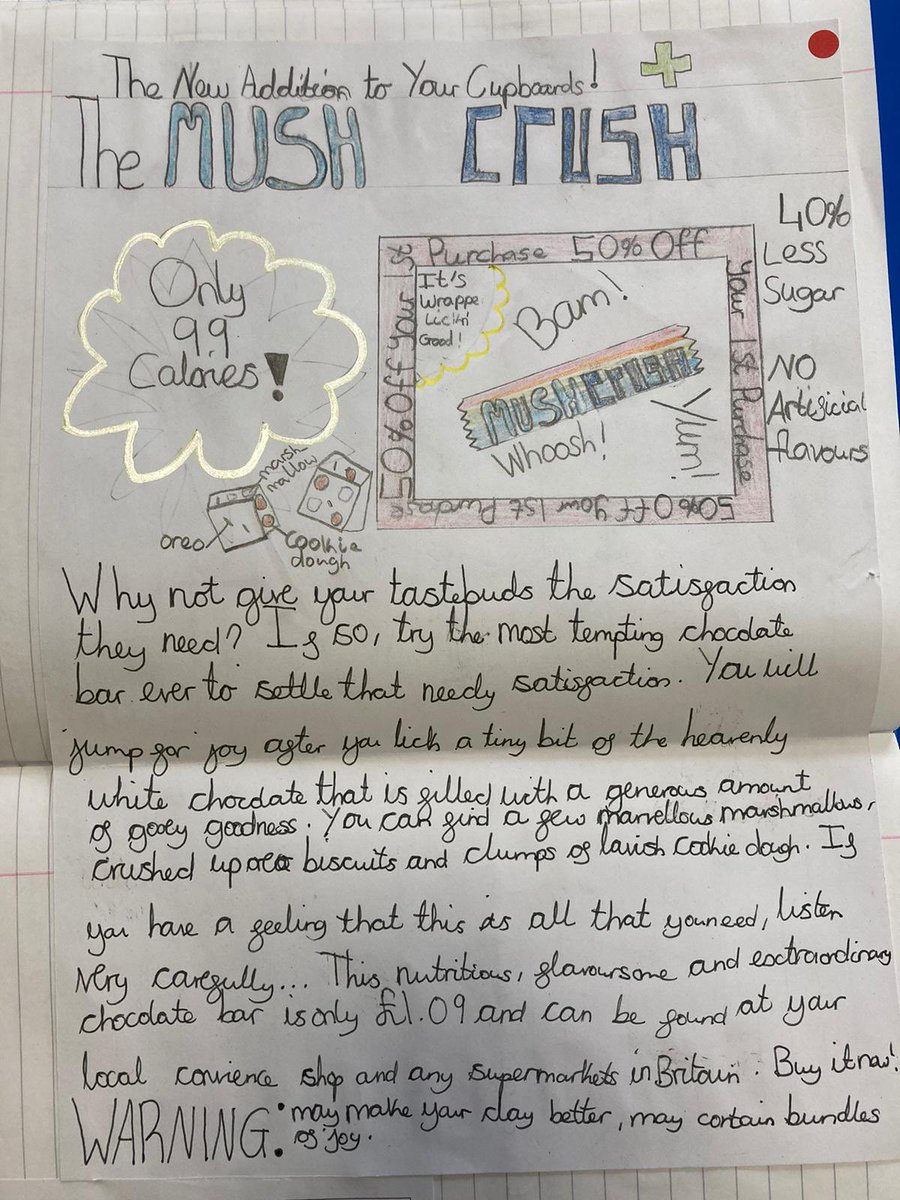 The New Addition to Your Cupboards!
The MUSH CRUSH
Only
99
Calories!
50% Off Your 1st Purchase 50% Off
Your 1st Purchase
50% Off Your 1st Purchase
It's
Wrappe
Lickin'
Good!
Bam!
MUSH CRUSH
Whoosh!
Yum!
40%
Less
Sugar
NO
Artificial
flavours
marsh
mallow
oreo
cookie
dough
Why not give your tastebuds the satisfaction
they need? If so, try the most tempting chocolate
bar ever to settle that needy satisfaction. You will
jump for joy after you lick a tiny bit of the heavenly
white chocolate that is filled with a generous amount
of gooey goodness. You can find a few marvellous marshmallows,
crushed up oreo biscuits and clumps of lavish cookie dough. If
you have a feeling that this is all that you need, listen
very carefully... This nutritious, flavoursome and exctraordinary
chocolate bar is only £1.09 and can be found at your
local convience shop and any supermarkets in Britain. Buy it now!
WARNING: may make your day better, may contain bundles
of joy.